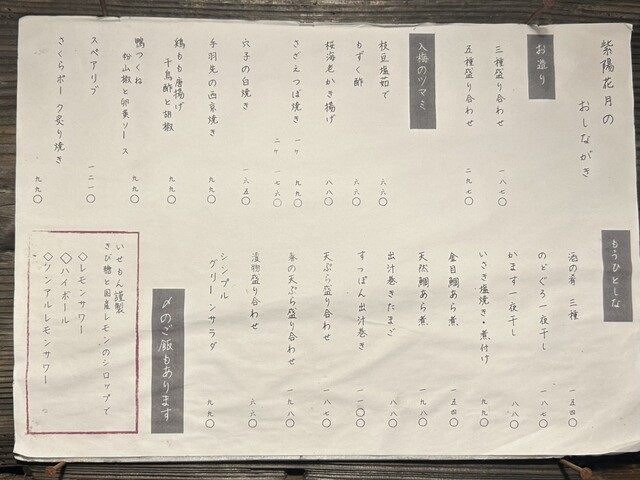 紫陽花月の
おしながき
お造り
三種盛り合わせ 一八七〇
五種盛り合わせ 二九七〇
入梅のツマミ
枝豆塩茹で 六六〇
もずく酢 六六〇
桜海老かき揚げ 八八〇
さざえつぼ焼き 一ケ 九九〇
二ケ 一七六〇
穴子の白焼き 一六五〇
手羽先の西京焼き 九九〇
鶏もも唐揚げ
千鳥酢と胡椒 九九〇
鴨つくね
粉山椒と卵黄ソース 九九〇
スペアリブ 一二一〇
さくらポーク炙り焼き 九九〇
もうひとしな
酒の肴 三種 一五四〇
のどぐろ一夜干し 一八七〇
かます一夜干し 八八〇
いさき塩焼き・煮付け 九九〇
金目鯛あら煮 一五四〇
天然鯛あら煮 一九八〇
出汁巻きたまご 八八〇
すっぽん出汁巻き 一一〇〇
天ぷら盛り合わせ 一八七〇
春の天ぷら盛り合わせ 一九八〇
漬物盛り合わせ 六六〇
シンプル
グリーンサラダ 九九〇
〆のご飯もあります
いせもん謹製
きび糖と国産レモンのシロップで
◇レモンサワー
◇ハイボール
◇ノンアルレモンサワー